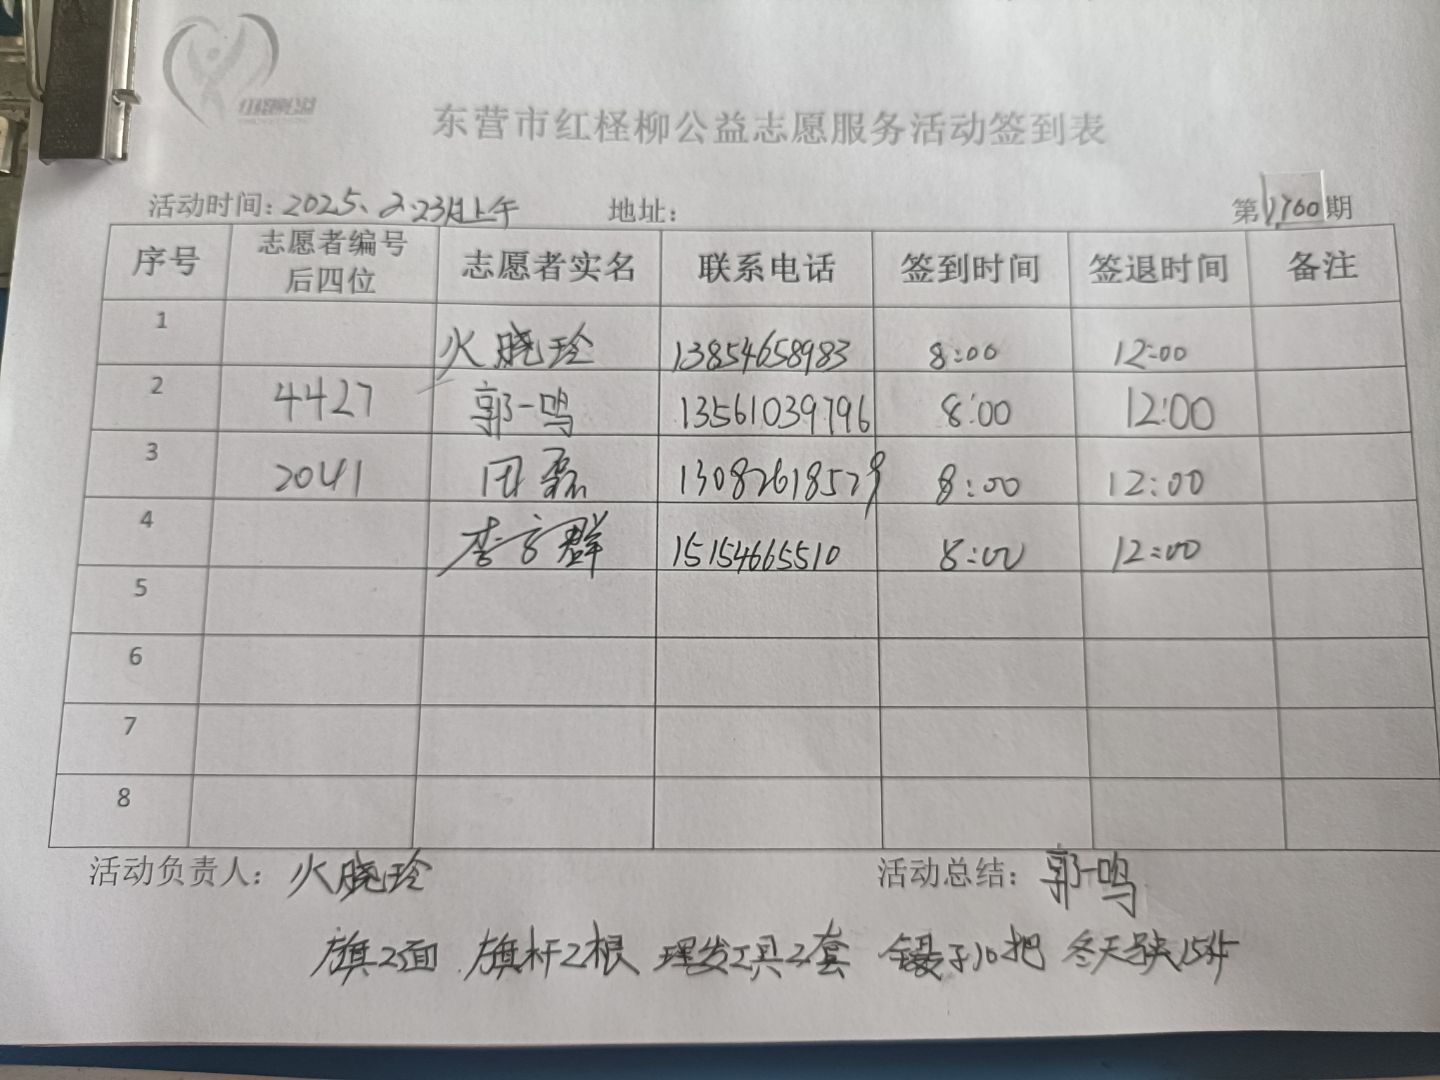 红柽柳公益
东营市红柽柳公益志愿服务活动签到表
活动时间：2025、2.23日上午 地址： 第1760期
序号 志愿者编号后四位 志愿者实名 联系电话 签到时间 签退时间 备注
1 火晓玲 13854658983 8:00 12:00
2 4427 郭一鸣 13561039796 8:00 12:00
3 2041 田磊 13082618579 8:00 12:00
4 李方群 15154665510 8:00 12:00
5
6
7
8
活动负责人：火晓玲 活动总结：郭一鸣
旗2面 旗杆2根 理发工具3套 镊子10把 冬天 15件